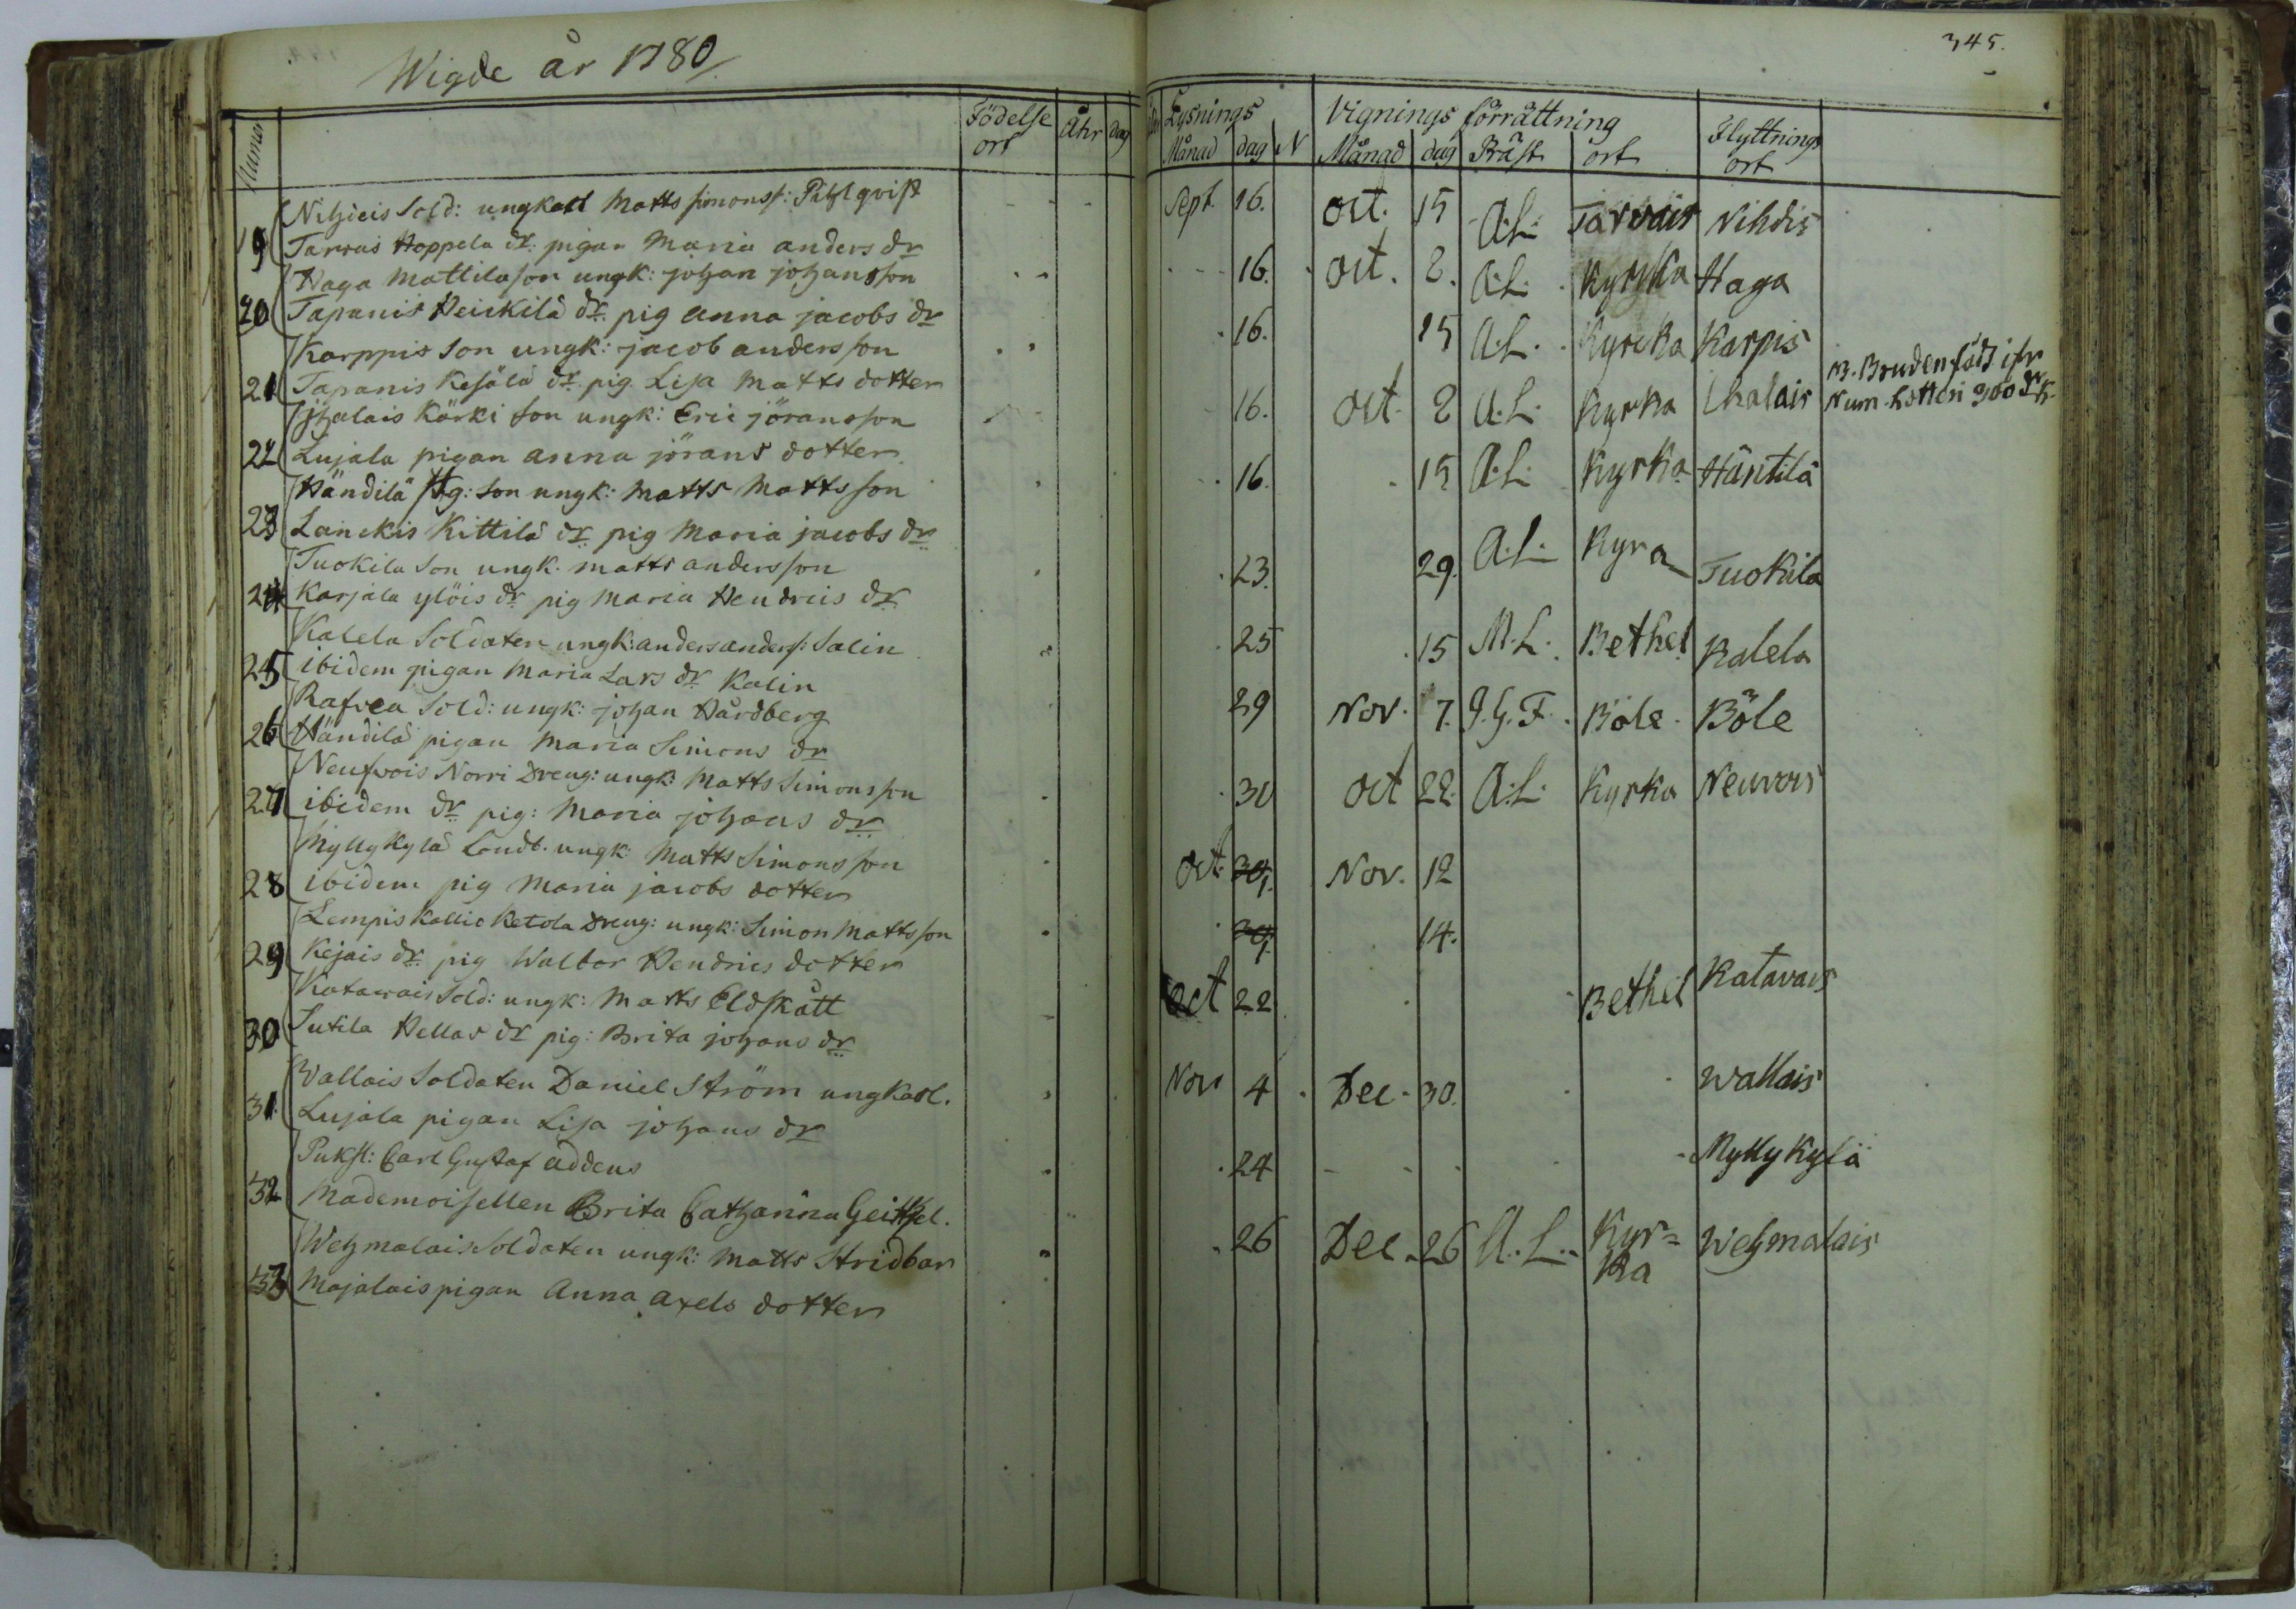 Wigde år 1780
345.
Numer
Födelse ort Åhr dag
Lysnings Månad dag N
Vignings förrättning Månad dag Präst ort
Flyttnings ort
Nihdieis Sold: ungkarl Matts simonss: Pihlqvist Sept. 16. Oct. 15 A.L. Tarvais Nihdis
19 Tarvais Hoppela dr: pigan Maria anders dr
Haga Mattila son ungk: johan johansson 16. Oct. 8. A.L. Kyrka Haga
20 Tapanis Heickilä dr. pig anna jacobs dr
Karppis Son ungk: jacob andersson 16. 15 A.L. Kyrcka Karpis
21 Tapanis Kesälä dr. pig. Lisa Matts dotter
jhalais Körki son ungk: Eric jöransson 16. Oct. 8 A.L. Kyrka Ihalais
NB. Bruden född ifr
Num. 300
22 Lujala pigan anna jörans dotter
Händilä Hg: Son ungk: Matts Mattsson 16. 15 A.L. Kyrka Häntilä
23 Lanckis Kittilä dr. pig Maria jacobs dr
Tuokila Son ungk. matts andersson 23. 29. A.L. Kyra Tuokila
24 Karjala ylöis dr. pig Maria Hendrics dr
Kalela Soldaten ungk: anders anders: Salin 25 15 M.L. Bethel Kalela
25 ibidem pigan Maria Lars dr Kalin
Rafvea Sold: ungk: johan Hårdberg 29 Nov. 7. J.G.F. Böle Böle
26 Händilä pigan Maria Simons dr
Neufvois Norri Dreng: ungk: Matts Simonsson 30 Oct 22. A.L. Kyrka Neuvois
27 ibidem dr. pig: Maria johans dr
Myllykylä Landb. ungk: Matts Simonsson Oct. Nov. 12
28 ibidem pig Maria jacobs dotter
Lempis Kallio Ketola Dreng: ungk: Simon Mattsson 14.
29 Kejais dr. pig Walbor Hendrics dotter
Katavais Sold: ungk: Matts Eldskått Oct 22 Bethel Katavais
30 Sutila Hellas dr pig: Brita johans dr
Vallais Soldaten Daniel Ström ungkarl. Nov 4 Dec. 30. Wallais
31 Lujala pigan Lisa johans dr
Puksl: Carl Gustaf addeus 24 Myllykylä
32 Mademoisellen Brita Catharina Geitzel.
Wehmalais Soldaten ungk: Matts Stridbar 26 Dec. 26 A.L. Kyr= ka Wehmalais
33 Majalais pigan Anna axels dotter